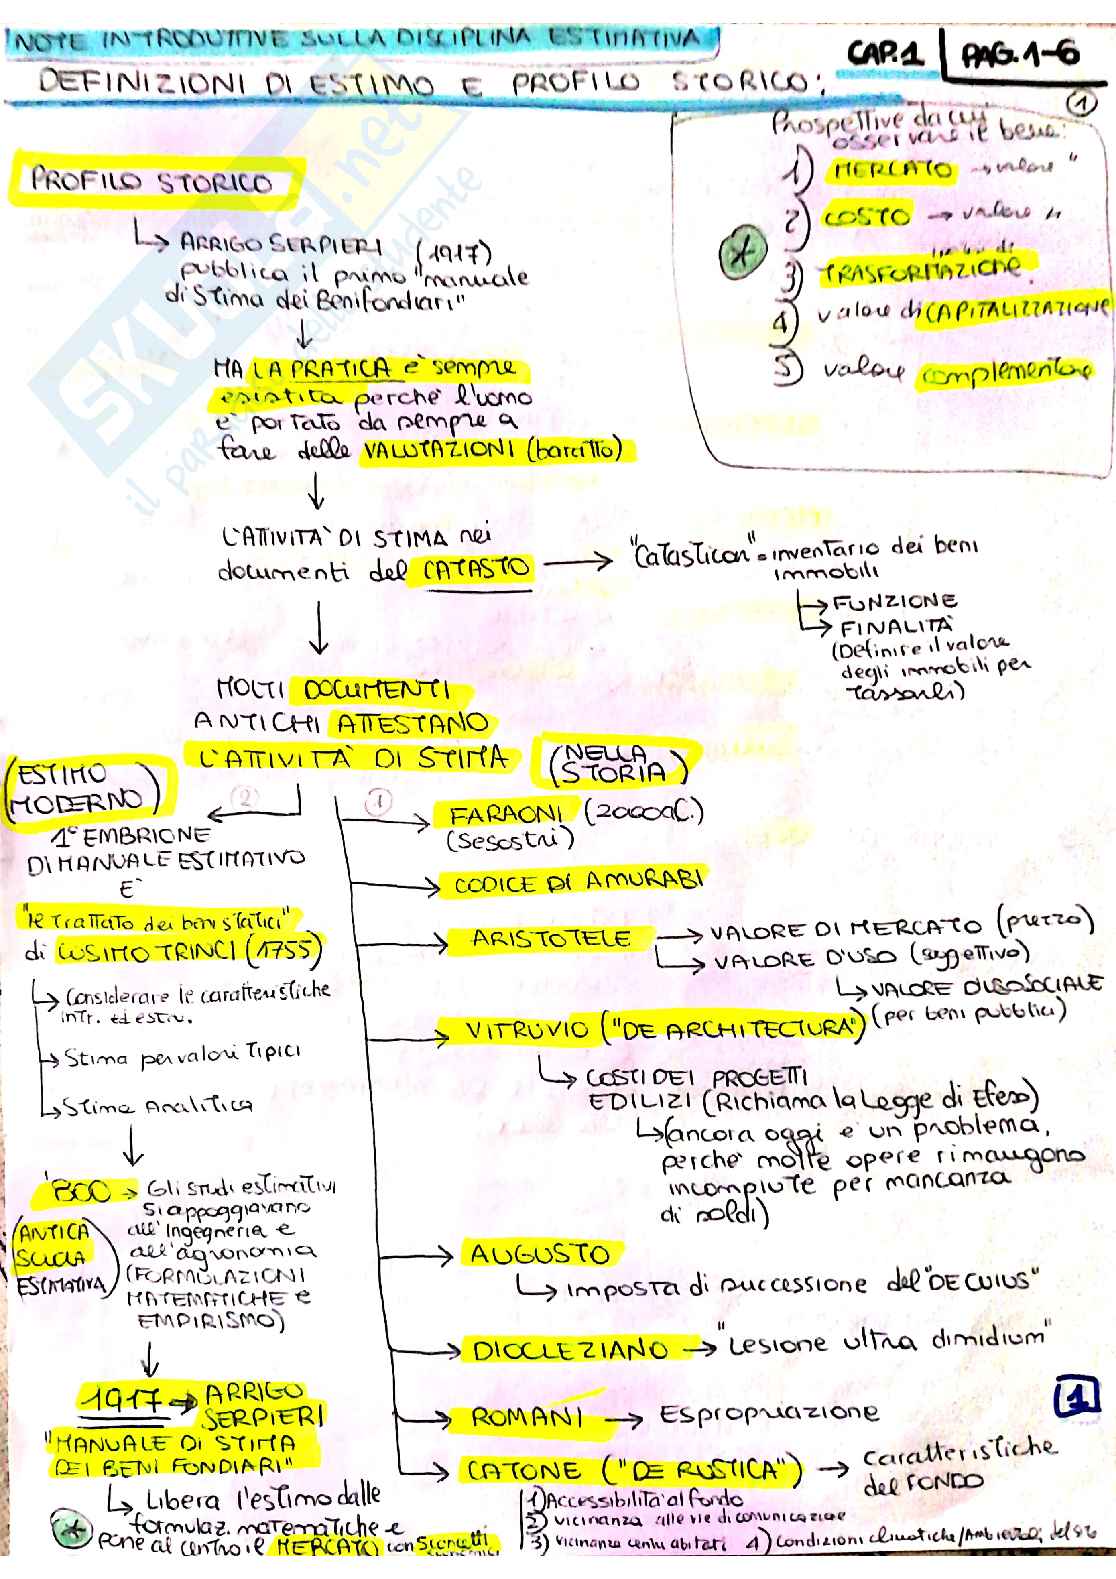 NOTE INTRODUTTIVE SULLA DISCIPLINA ESTIMATIVA
CAP.1 PAG.1-6
DEFINIZIONI DI ESTIMO E PROFILO STORICO:
1
Prospettive da cui
osservare il bene:
1) MERCATO → valore "
2) COSTO → valore "
3) TRASFORMAZIONE
4) valore di CAPITALIZZAZIONE
5) valore complementare
PROFILO STORICO
↳ ARRIGO SERPIERI (1917)
pubblica il primo "manuale
di Stima dei Beni fondiari"
MA LA PRATICA è sempre
esistita perchè l'uomo
e' portato da sempre a
fare delle VALUTAZIONI (baratto)
L'ATTIVITA' DI STIMA nei
documenti del CATASTO → "Catasticon" = inventario dei beni
immobili
→ FUNZIONE
→ FINALITÀ
(Definire il valore
degli immobili per
tassarli)
MOLTI DOCUMENTI
ANTICHI ATTESTANO
L'ATTIVITÀ DI STIMA (NELLA
STORIA)
(ESTIMO
MODERNO)
(2)
1° EMBRIONE
DI MANUALE ESTIMATIVO
E'
"il Trattato dei beni statici"
di COSIMO TRINCI (1755)
↳ Considerare le caratteristiche
intr. ed estr.
→ Stima per valori Tipici
↳ Stima Analitica
'800 → Gli studi estimativi
si appoggiavano
all'Ingegneria e
all'agronomia
(FORMULAZIONI
MATEMATICHE e
EMPIRISMO)
(ANTICA
SCUOLA
ESTIMATIVA)
1917 → ARRIGO
SERPIERI
"MANUALE DI STIMA
DEI BENI FONDIARI"
↳ Libera l'estimo dalle
formulaz. matematiche e
pone al centro il MERCATO con
(1)
FARAONI (2000 a.C.)
(Sesostri)
CODICE DI AMURABI
ARISTOTELE → VALORE DI MERCATO (prezzo)
↳ VALORE D'USO (soggettivo)
↳ VALORE D'USO SOCIALE
(per beni pubblici)
VITRUVIO ("DE ARCHITECTURA")
↳ COSTI DEI PROGETTI
EDILIZI (Richiama la Legge di Efeso)
↳ (ancora oggi e' un problema,
perche' molte opere rimangono
incompiute per mancanza
di soldi)
AUGUSTO
↳ imposta di successione del "DE CUIUS"
DIOCLEZIANO → "Lesione ultra dimidium"
ROMANI → Espropriazione
CATONE ("DE RUSTICA") → Caratteristiche
del FONDO
1) Accessibilità al fondo
2) vicinanza alle vie di comunicazione
3) vicinanza centri abitati 4) Condizioni climatiche/Ambientali
1
SKUOLA.net
il paradiso dello studente